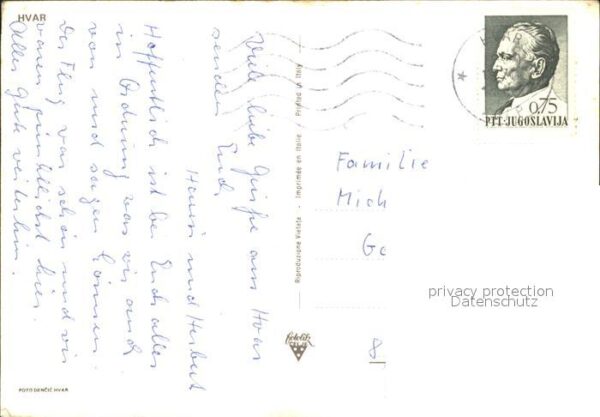 HVAR
Viele liebe Grüße aus Hvar
senden Euch
Henni und Herbert
Hoffentlich ist bei Euch alles
in Ordnung was wir auch
von uns sagen können.
Der Flug war schön und wir
waren pünktlichst hier.
Alles Gute weiterhin.
FOTO DANČIĆ, HVAR
Reproduzione Vietata - Imprimée en Italie - Printed in Italy
fotolik
0,75
PTT-JUGOSLAVIJA
Familie
Mich
Ge
A
privacy protection
Datenschutz